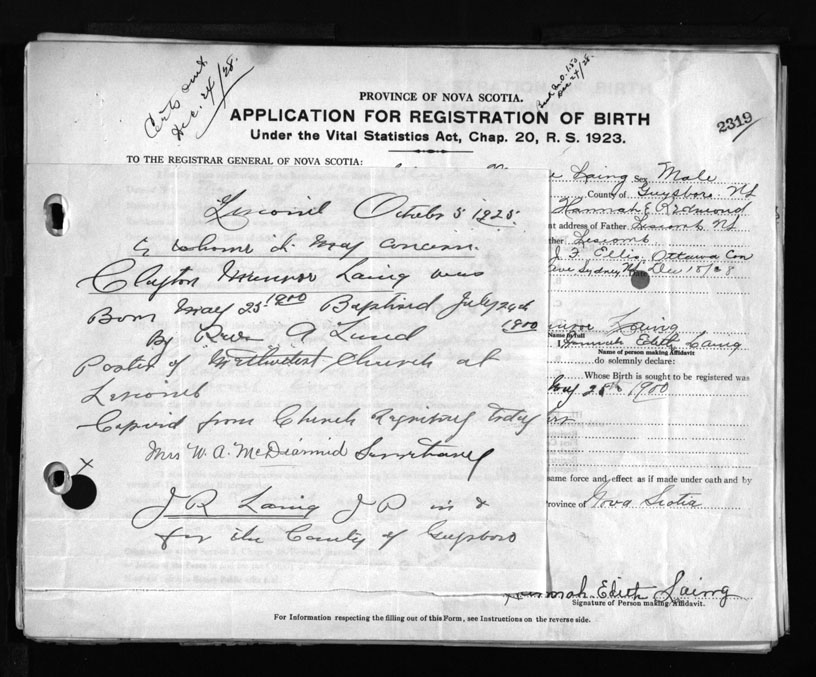 Certs
Dec. 24/28.
Dec 24/28.
2319
PROVINCE OF NOVA SCOTIA.
APPLICATION FOR REGISTRATION OF BIRTH
Under the Vital Statistics Act, Chap. 20, R. S. 1923.
TO THE REGISTRAR GENERAL OF NOVA SCOTIA:
Laing Sex Male
County of Guysboro NS
Hannah E Redmond
nt address of Father Liscomb NS
ther Liscomb
J. F. Ellis Ottawa Con
Sydney NS Date Dec 18/28
Laing
Name in full
I, Hannah Edith Laing
Name of person making Affidavit
do solemnly declare:
Whose Birth is sought to be registered was
May 25th 1900
same force and effect as if made under oath and by
rovince of Nova Scotia
Hannah Edith Laing
Signature of Person making Affidavit.
Liscomb October 5 1925
To whome it May concern.
Clayton Laing was
Born May 25 1900 Baptised July 24th
1900
By Rev A Lund
Pastor of Methodist Church at
Liscomb
Copied from Church today
Mrs W. A. McDiarmid
J R Laing J P in &
for the County of Guysboro
X
For Information respecting the filling out of this Form, see Instructions on the reverse side.